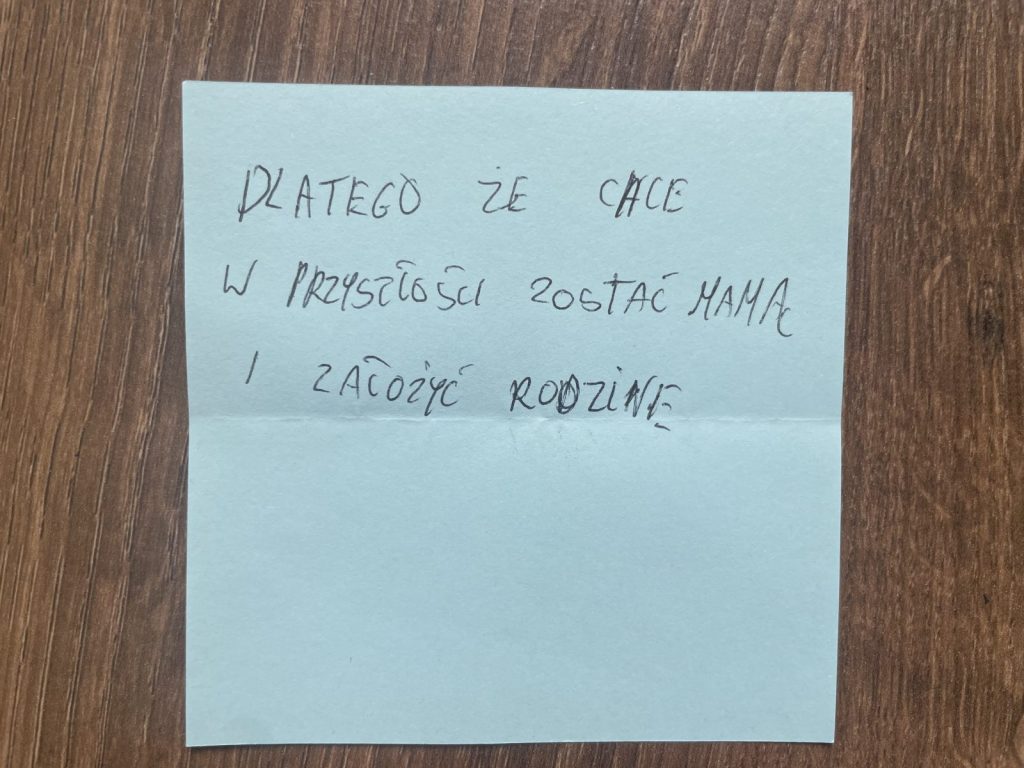 DLATEGO ŻE CHCE
W PRZYSZŁOŚCI ZOSTAĆ MAMĄ
I ZAŁOŻYĆ RODZINĘ